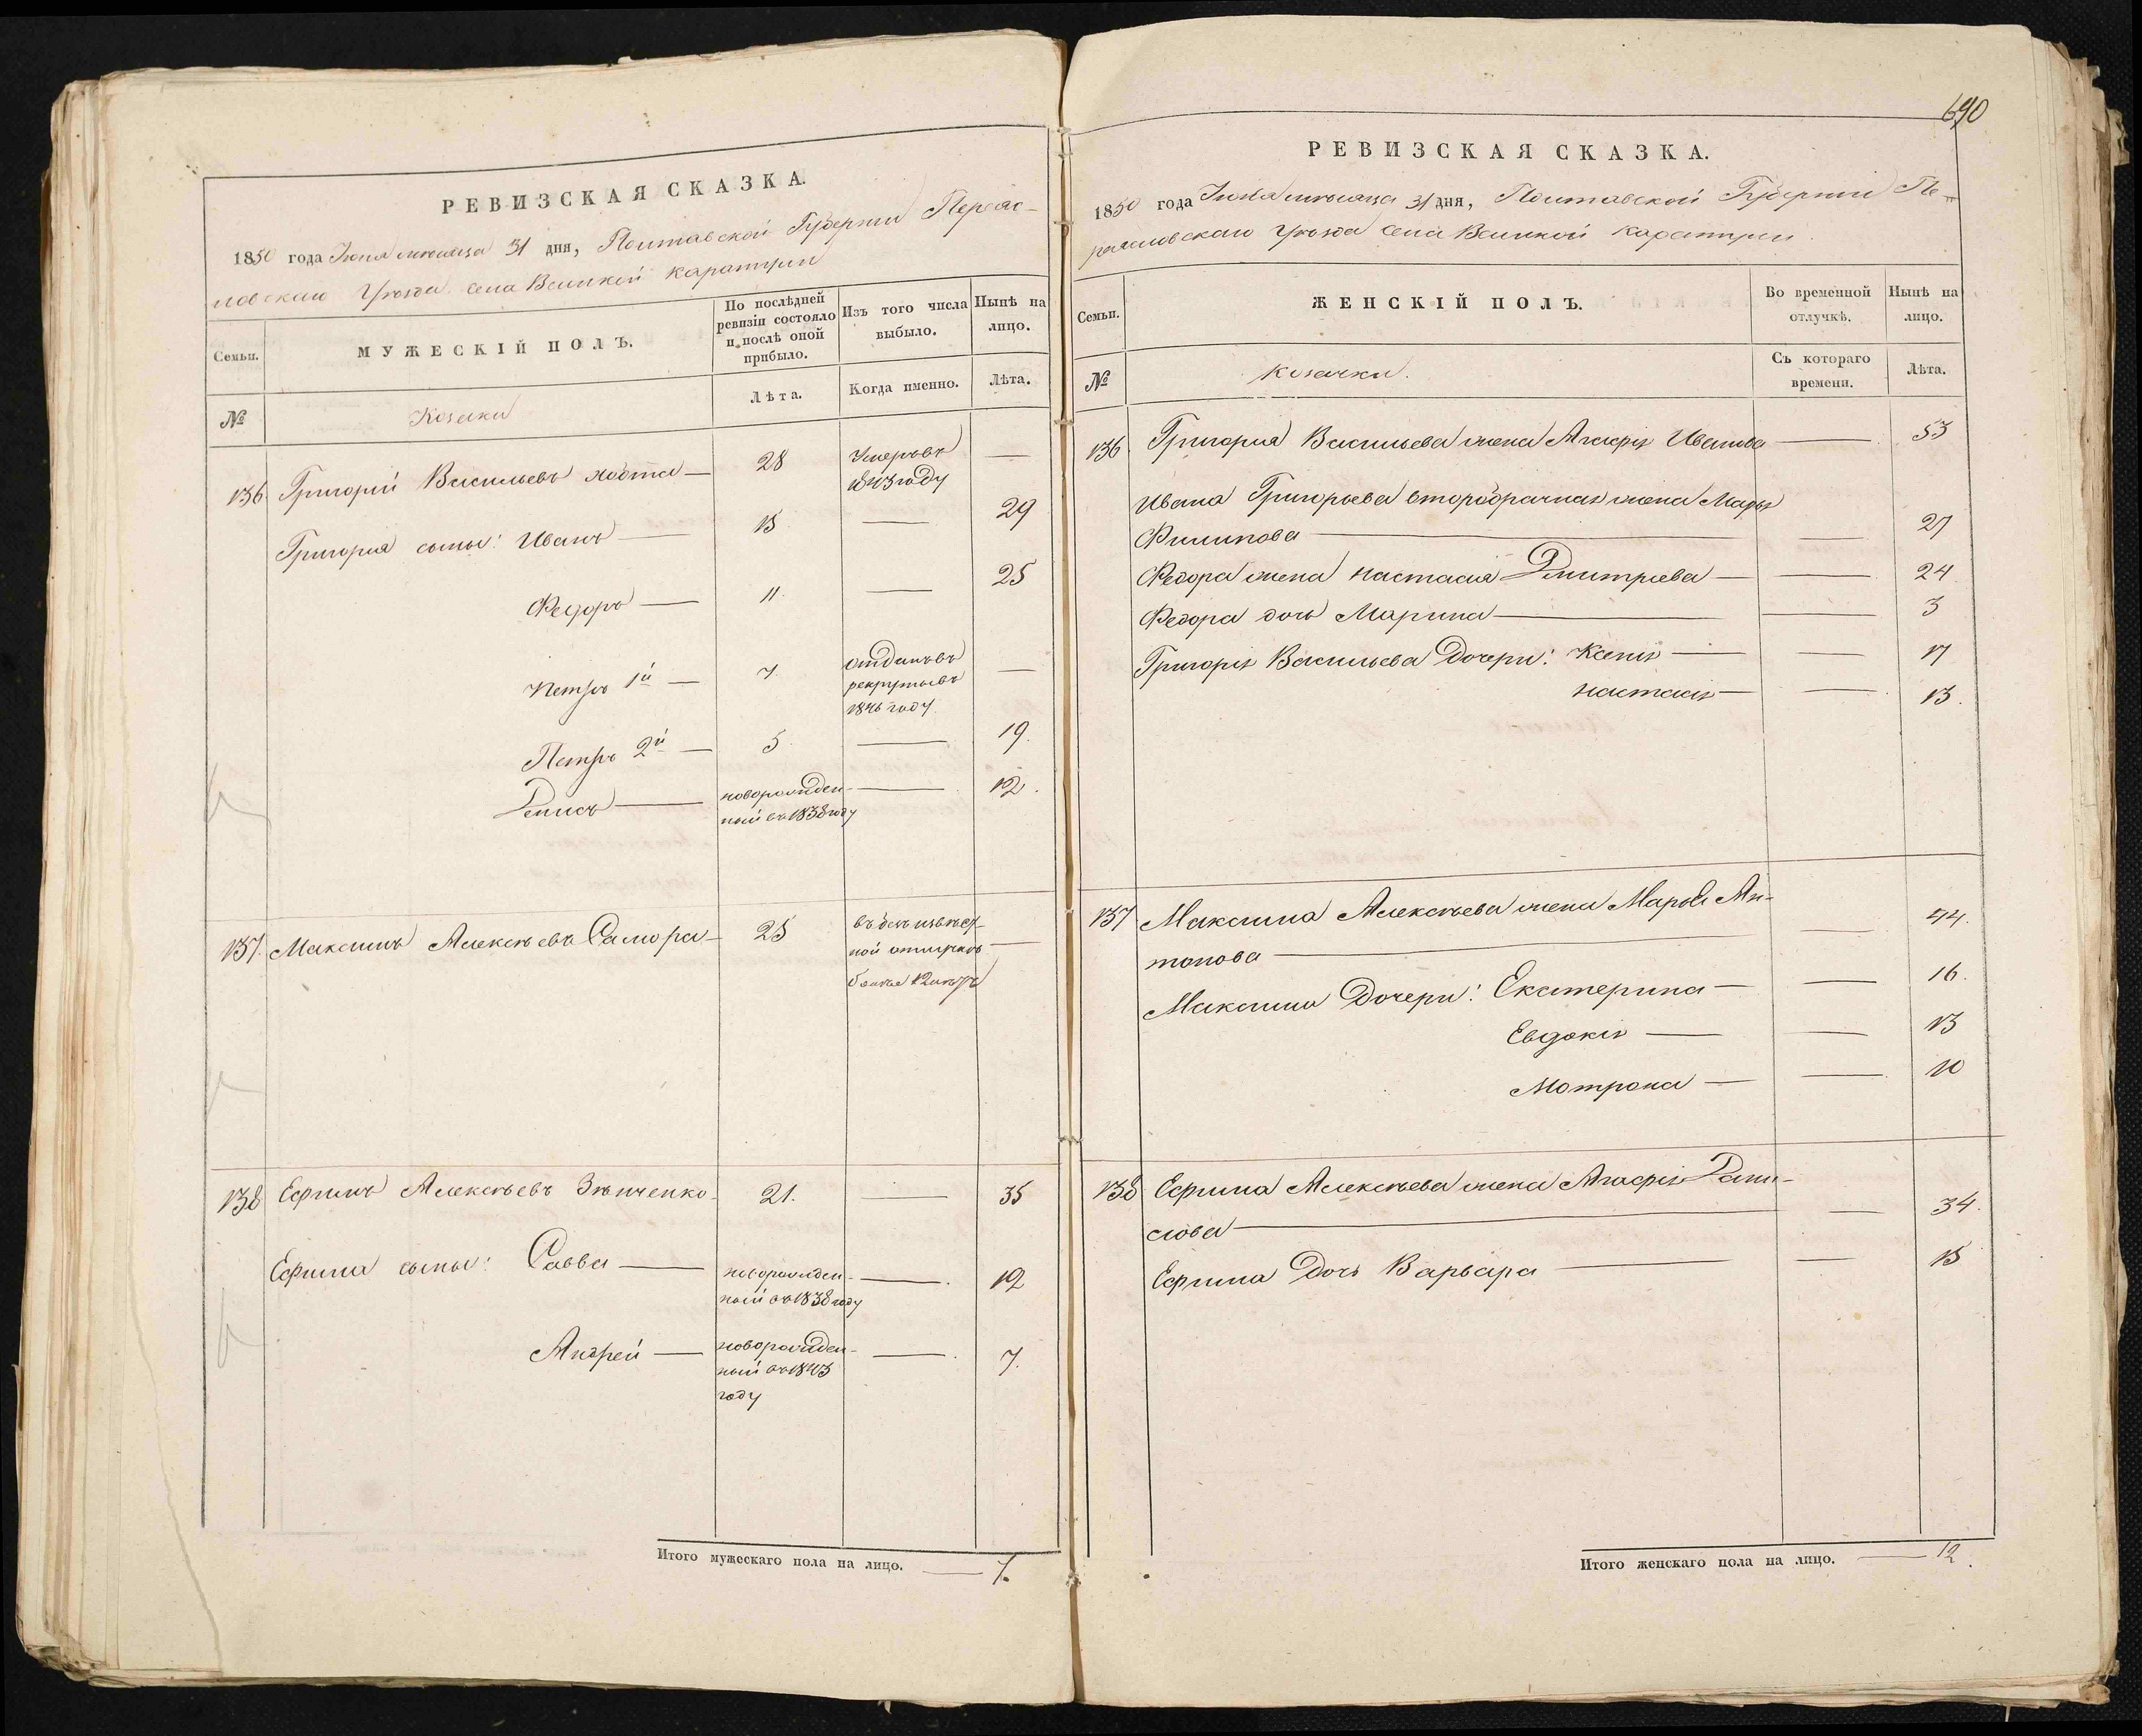 РЕВИЗСКАЯ СКАЗКА.
1850 года Іюля мѣсяца 31 дня, Полтавской Губерніи Переяс-
ловскаго Уѣзда села Великой Каратули
Семьи.
МУЖЕСКІЙ ПОЛЪ.
По послѣдней ревизіи состояло и послѣ оной прибыло.
Изъ того числа выбыло.
Нынѣ на лицо.
№
Козаки
Лѣта.
Когда именно.
Лѣта.
136. Григорій Васильевъ — 28 Умеръ въ —
1843 году
Григорія сыны: Иванъ — 15 — 29
Федоръ — 11 — 25
Петръ 1й — 7 отданъ въ —
рекруты въ
1846 году
Петръ 2й — 5 — 19
Денисъ — новорожден- — 12
ный въ 1838 году
137. Максимъ Алексѣевъ Самора — 25 въ безъизвѣст-
ной отлучкѣ —
болѣе 12 лѣтъ
138 Ефимъ Алексѣевъ Зѣнченко 21. — 35
Ефима сыны: Савва — новорожден- — 12
ный въ 1838 году
Андрей — новорожден- — 7.
ный въ 1843
году
Итого мужескаго пола на лицо. — 7.
690
РЕВИЗСКАЯ СКАЗКА.
1850 года Іюля мѣсяца 31 дня, Полтавской Губерніи Пе-
реясловскаго Уѣзда села Великой Каратули.
Семьи.
ЖЕНСКІЙ ПОЛЪ.
Во временной отлучкѣ.
Нынѣ на лицо.
№
Козачки.
Съ котораго времени.
Лѣта.
136. Григорія Васильева жена Агафія Иванова — 53
Ивана Григорьева второбрачная жена Марья
Филипова — 27
Федора жена Настасія Дмитріева — 24
Федора дочь Марина — 3
Григорія Васильева дочери: Ксенія — 17
Настасія — 13.
137 Максима Алексѣева жена Марья Ан-
тонова — 44.
Максима дочери: Екатерина — 16.
Евдокія — 13
Мотрона — 10
138 Ефима Алексѣева жена Агафія Дани-
лова — 34.
Ефима дочь Варвара — 15
Итого женскаго пола на лицо. — 12.